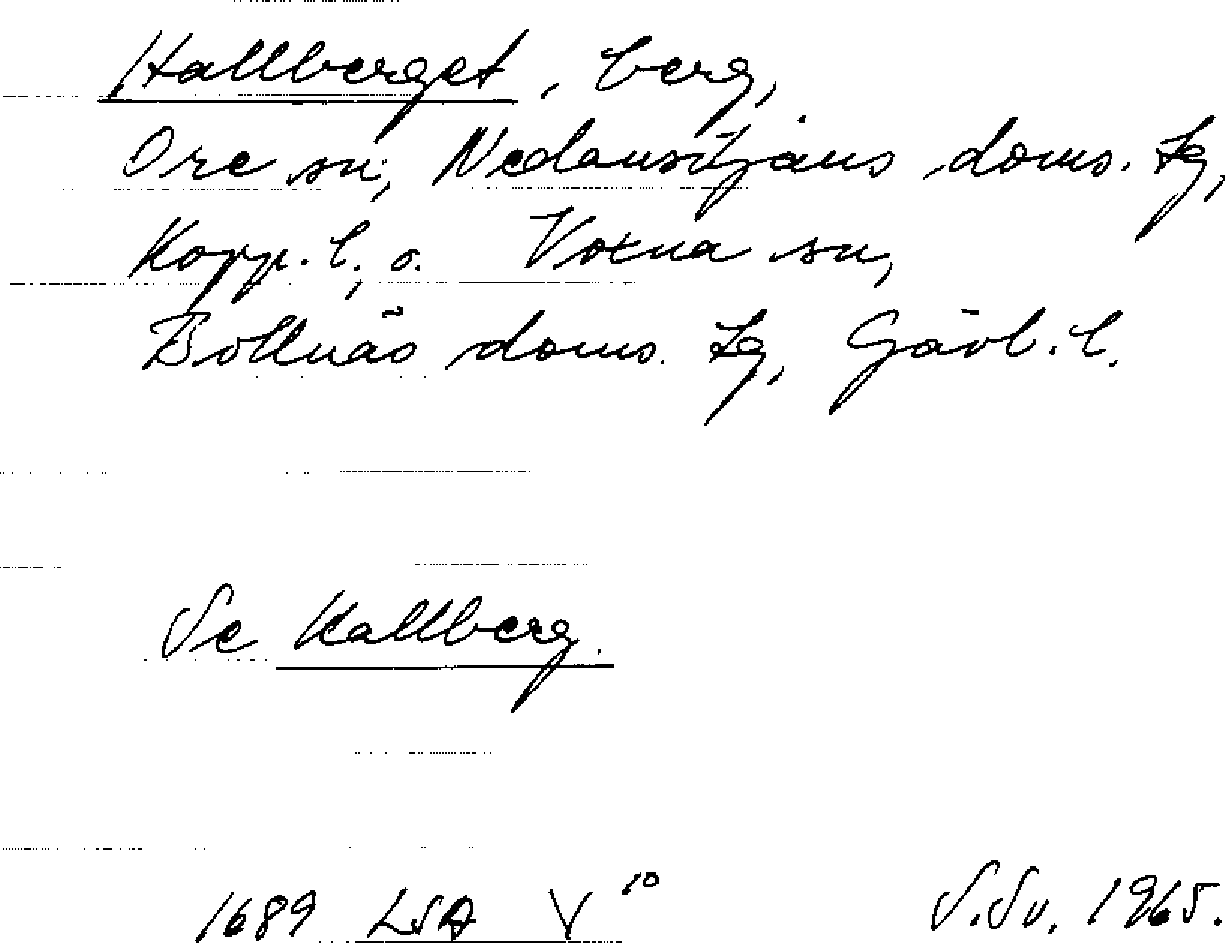 Hallberget, berg,
Ore sn, Nedansiljans doms. Lg,
Kopp. l, o. Voxna sn,
Bollnäs doms. Lg, Gävl. l.
Se Hallberg.
1689 LSA V 10 S.Sv. 1965.